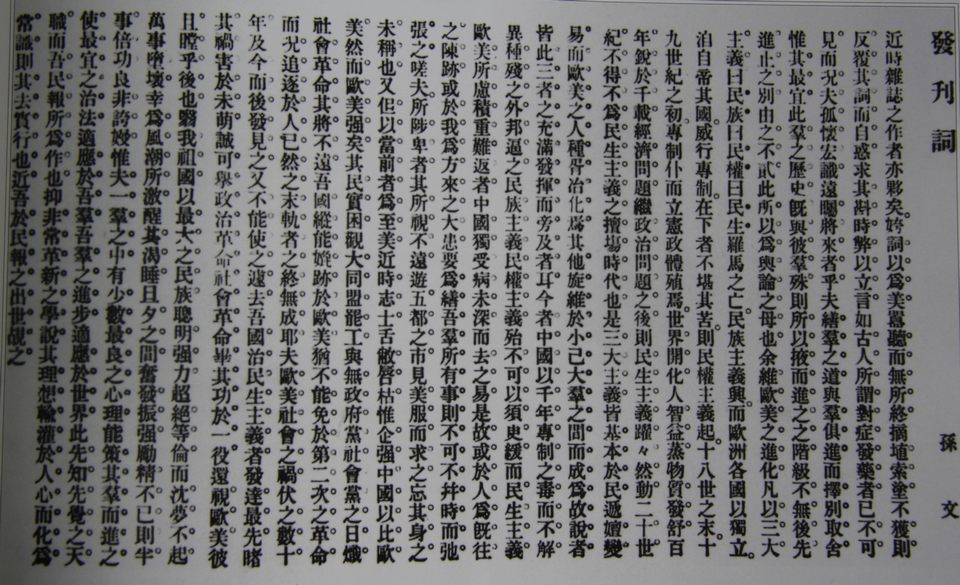 發刊詞
孫文
近時雜誌之作者亦夥矣姱詞以為美囂聽而無所終摘埴索塗不獲則
反覆其詞而自惑求其斟時弊以立言如古人所謂對症發藥者已不可
見而况夫孤懷宏識遠矚將來者乎夫繕羣之道與羣俱進而擇別取舍
惟其最宜此羣之歷史既與彼羣殊則所以掖而進之之階級不無後先
進止之別由之不貳此所以為輿論之母也余維歐美之進化凡以三大
主義曰民族曰民權曰民生羅馬之亡民族主義興而歐洲各國以獨立
洎自帝其國威行專制在下者不堪其苦則民權主義起十八世之末十
九世紀之初專制仆而立憲政體殖焉世界開化人智益蒸物質發舒百
年銳於千載經濟問題繼政治問題之後則民生主義躍々然動二十世
紀不得不爲民生主義之擅塲時代也是三大主義皆基本於民遞嬗變
易而歐美之人種胥冶化焉其他旋維於小己大羣之間而成爲故說者
皆此三者之充滿發揮而旁及者耳今者中國以千年專制之毒而不解
異種殘之外邦逼之民族主義民權主義殆不可以須臾緩而民生主義
歐美所慮積重難返者中國獨受病未深而去之易是故或於人爲既往
之陳跡或於我爲方來之大患要爲繕吾羣所有事則不可不并時而弛
張之嗟夫所陟卑者其所視不遠遊五都之市見美服而求之忘其身之
未稱也又但以當前者爲至美近時志士舌敝唇枯惟企强中國以比歐
美然而歐美强矣其民實困觀大同盟罷工與無政府黨社會黨之日熾
社會革命其將不遠吾國縱能媲跡於歐美猶不能免於第二次之革命
而况追逐於人已然之末軌者之終無成耶夫歐美社會之禍伏之數十
年及今而後發見之又不能使之遽去吾國治民生主義者發達最先睹
其禍害於未萌誠可舉政治革命社會革命畢其功於一役還視歐美彼
且瞠乎後也翳我祖國以最大之民族聰明强力超絕等倫而沈夢不起
萬事墮壞幸爲風潮所激醒其渴睡旦夕之間奮發振强勵精不已則半
事倍功良非誇嫚惟夫一羣之中有少數最良之心理能策其羣而進之
使最宜之治法適應於吾羣吾羣之進步適應於世界此先知先覺之天
職而吾民報所爲作也抑非常革新之學說其理想輸灌於人心而化爲
常識則其去實行也近吾於民報之出世覘之